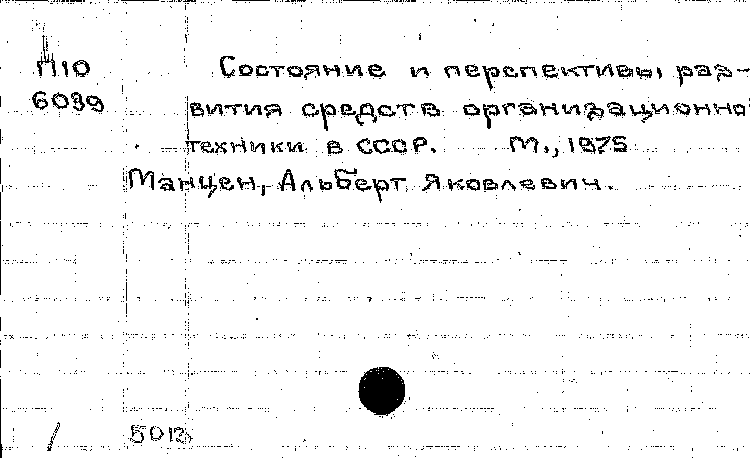 П10
6039
Состояние и перспективы раз-
вития средств организационно
техники в СССР. М., 1975
Манцен, Альберт Яковлевич.
5013